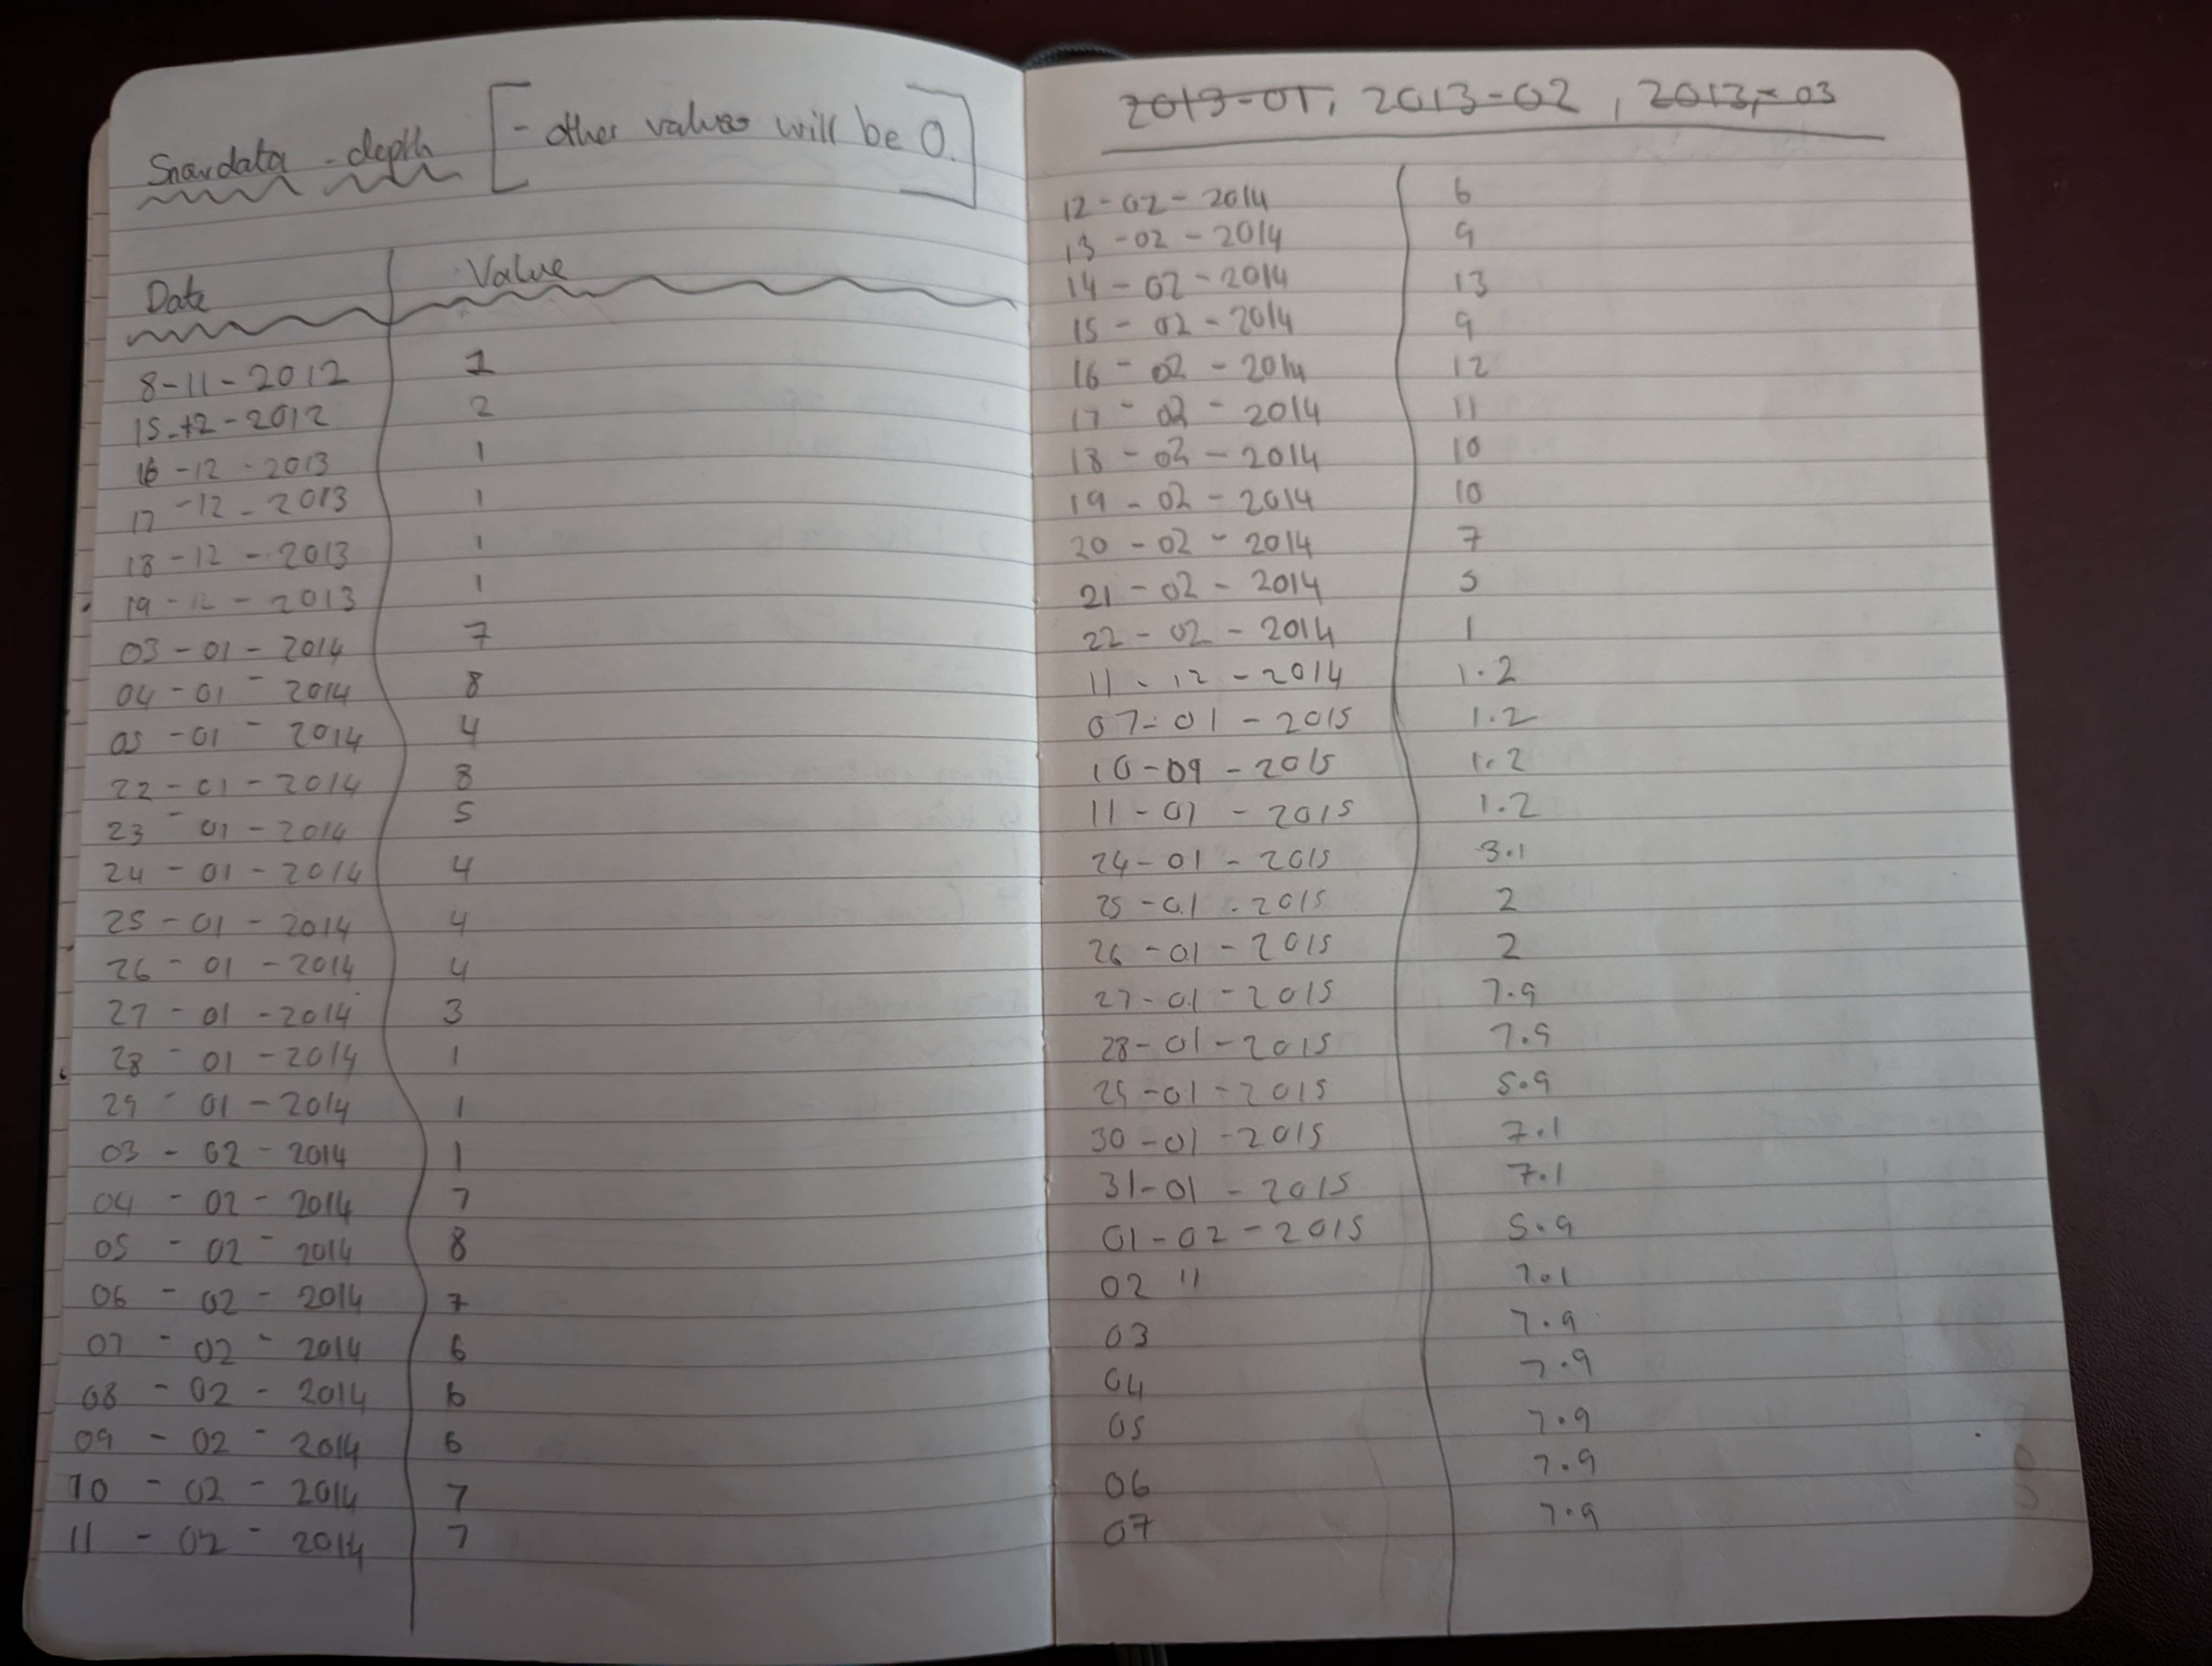 Snowdata - depth [- other values will be 0.]
Date Value
8-11-2012 1
15-12-2012 2
16-12-2013 1
17-12-2013 1
18-12-2013 1
19-12-2013 1
03-01-2014 7
04-01-2014 8
05-01-2014 4
22-01-2014 8
23-01-2014 5
24-01-2014 4
25-01-2014 4
26-01-2014 4
27-01-2014 3
28-01-2014 1
29-01-2014 1
03-02-2014 1
04-02-2014 7
05-02-2014 8
06-02-2014 7
07-02-2014 6
08-02-2014 6
09-02-2014 6
10-02-2014 7
11-02-2014 7
2013-01, 2013-02, 2013-03
12-02-2014 6
13-02-2014 9
14-02-2014 13
15-02-2014 9
16-02-2014 12
17-02-2014 11
18-02-2014 10
19-02-2014 10
20-02-2014 7
21-02-2014 5
22-02-2014 1
11-12-2014 1.2
07-01-2015 1.2
10-09-2015 1.2
11-01-2015 1.2
24-01-2015 3.1
25-01-2015 2
26-01-2015 2
27-01-2015 7.9
28-01-2015 7.9
29-01-2015 5.9
30-01-2015 7.1
31-01-2015 7.1
01-02-2015 5.9
02 " 7.1
03 7.9
04 7.9
05 7.9
06 7.9
07 7.9